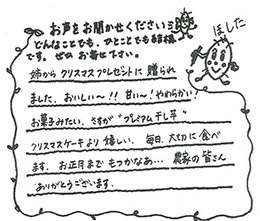 お声をお聞かせください
どんなことでも、ひとことでも結構
です。ぜひ お寄せ下さい。
ほした
姉から クリスマスプレゼントに 贈られ
ました。おいしい〜!! 甘い〜! やわらかい!
お菓子みたい。さすが "プレミアム干し芋"
クリスマスケーキより 嬉しい。毎日、大切に 食べ
ます。お正月まで もつかなぁ… 農家の 皆さん
ありがとうございます。